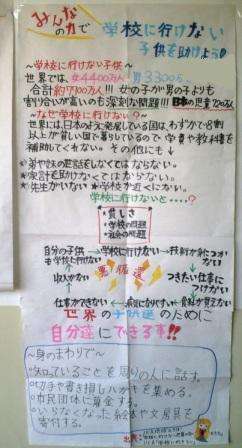 みんなの力で 学校に行けない
子供を助けよう!
～学校に行けない子供～
世界では、♂4400万人 ♀3300
合計約7700万人!!! 女の子が男の子よりも
割り合いが高いのも深刻な問題!!! 日本の児童720万人
～なぜ学校に行けない?～
世界には、日本のように発展している国は、わずかで8割
以上が貧しい国で暮らしているので、学費や教科書を
補助してくれない。その他にも↓
★弟や妹の世話をしなくてはならない。
★家計を助けなくてはならない。
★先生がいない ★学校が近くにない。
学校に行けないと・・・・?
★貧しさ
★学校の問題
★社会の問題
自分の子供も学校に行けない
学校に行けない
技術が身につかない
悪循環
収入がない
つきたい仕事につけない
仕事ができない
病気になりやすい
世界の子供達のために
自分達にできる事!!
～身のまわりで～
★知っていることを周りの人に話す。
★切手や書き損じハガキを集める。
★市民団体に募金する。
★いらなくなった絵本や文房具を
寄付する。